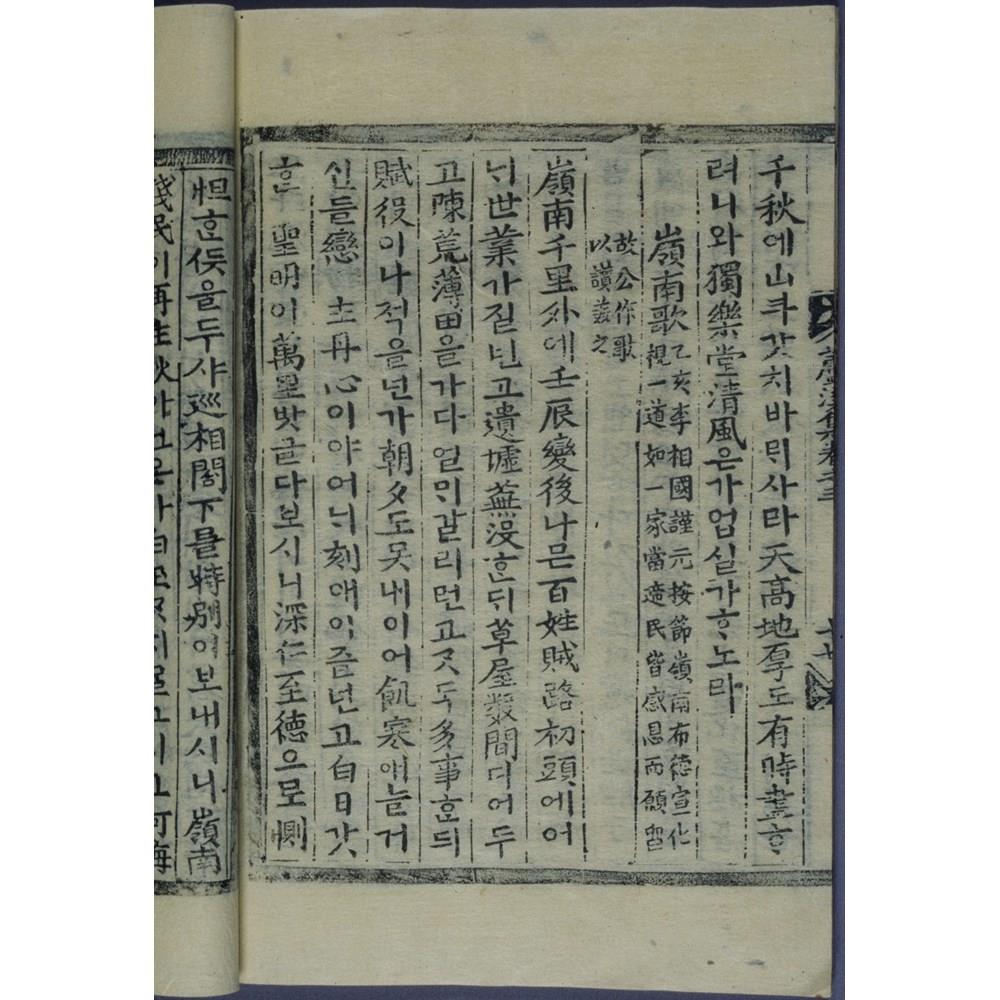 千秋에山ᄯᅩᄀᆞᆺ치바ᄅᆡ사라天高地厚도有時盡ᄒᆞ
려니와獨樂堂淸風은가업실가ᄒᆞ노라
嶺南歌
乙亥李相國謹元按節嶺南布德宣化
視一道如一家當道民皆感恩而願留
故公作歌
以讚美之
嶺南千里外예壬辰變後나믄百姓賊路初頭에어
ᄂᆡ世業가질넌고遺墟蕪沒ᄒᆞᆫᄃᆡ草屋數間디어두
고陳荒薄田을가다얼ᄆᆡ갈리런고ᄀᆞᆺ도多事ᄒᆞᆫᄃᆡ
賦役이나적을넌가朝夕도못내이어飢寒애늘거
신ᄃᆞᆯ戀 主丹心이야어ᄂᆡ刻애이즐넌고白日ᄀᆞᆺ
ᄒᆞᆫ 聖明이萬里밧글다보시니深仁至德으로惻
怛ᄒᆞᆫᄠᅳᆺ을두샤巡相閤下를特別이보내시니嶺南
殘民이再生秋아